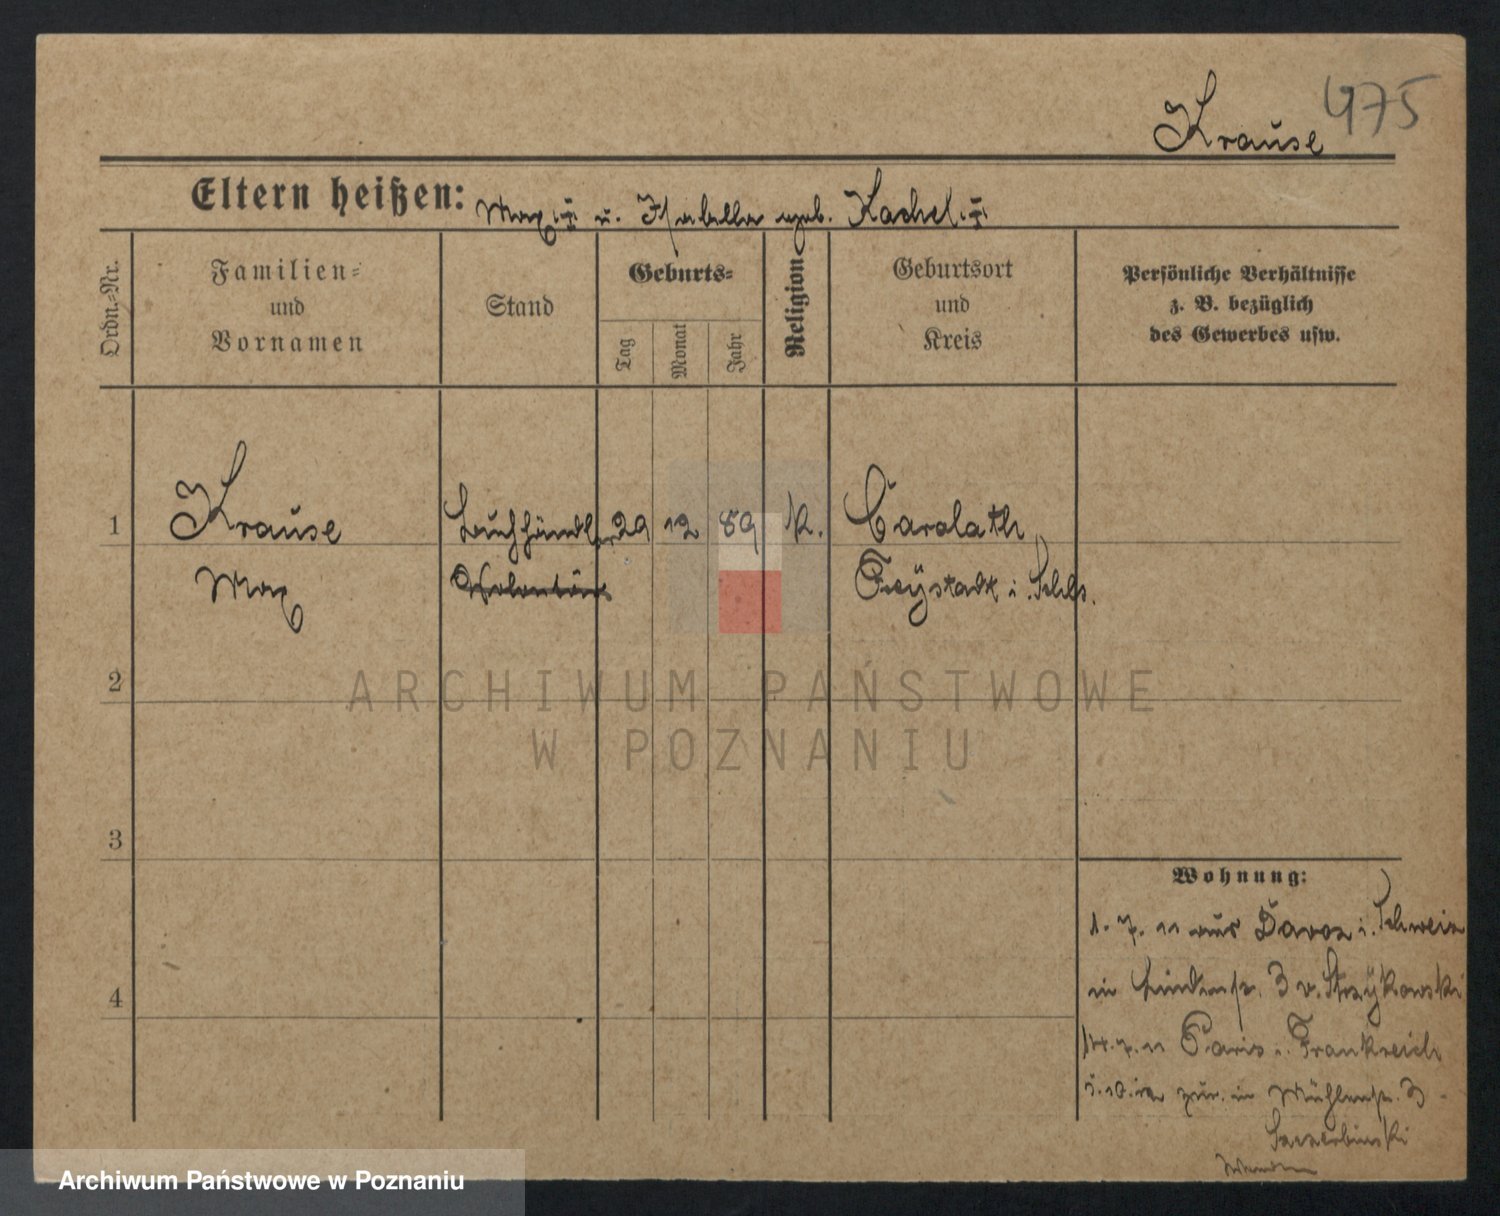 Krause 475
Eltern heißen: Max ☦ u. Isabella geb. Kachel ☦
Ordn.-Nr.
Familien-
und
Vornamen
Stand
Geburts-
Tag
Monat
Jahr
Religion
Geburtsort
und
Kreis
Persönliche Verhältnisse
z. B. bezüglich
des Gewerbes usw.
1 Krause Buchhändler 29 12 89 k. Carolath
Max Volontär Freystadt i. Schls.
2
3
4
Wohnung:
1. 7. 11 aus Davos i. Schweiz
in Lindenstr. 3 v. Strzykowski
14. 7. 11 Paris i. Frankreich
zur. in Mühlenstr. 3
ARCHIWUM PAŃSTWOWE
W POZNANIU
Archiwum Państwowe w Poznaniu